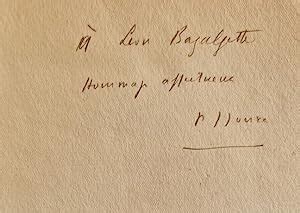 à Léon Bazalgette
Hommage affectueux